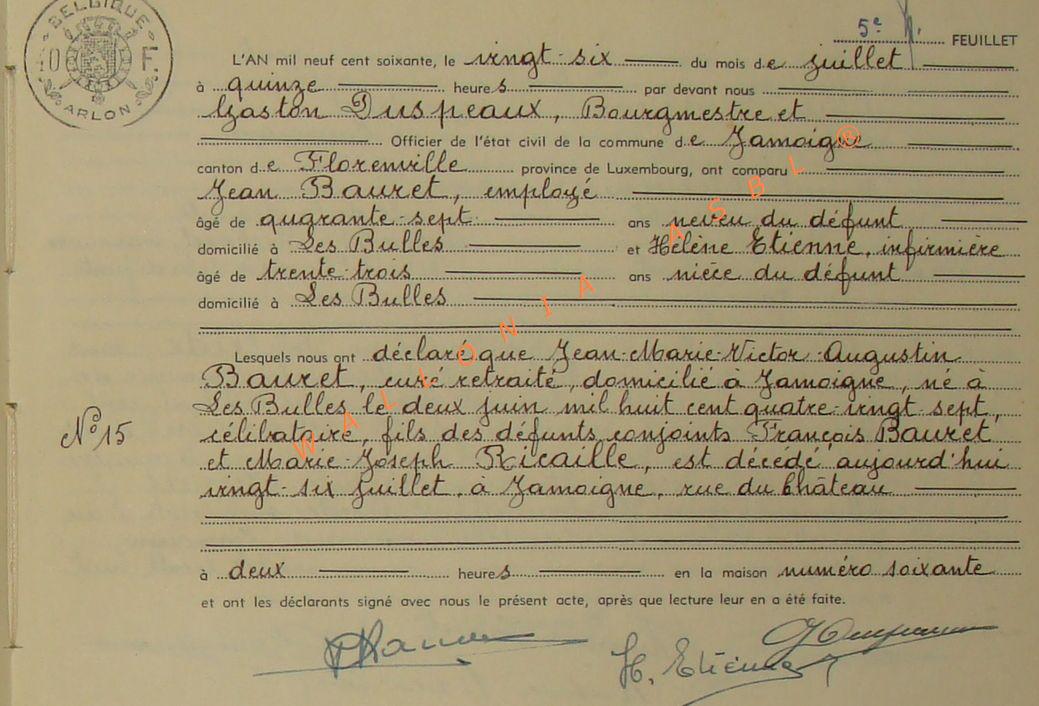 BELGIQUE
10 F.
ARLON
5e FEUILLET
L'AN mil neuf cent soixante, le vingt-six du mois de juillet
à quinze heures par devant nous
Gaston Duspeaux, Bourgmestre et
Officier de l'état civil de la commune de Jamoigne
canton de Florenville province de Luxembourg, ont comparu
Jean Bauret, employé
âgé de quarante-sept ans neveu du défunt
domicilié à Les Bulles et Hélène Etienne, infirmière
âgé de trente-trois ans nièce du défunt
domicilié à Les Bulles
Lesquels nous ont déclaré que Jean-Marie-Victor-Augustin
Bauret, curé retraité, domicilié à Jamoigne, né à
Les Bulles le deux juin mil huit cent quatre-vingt sept,
N° 15
célibataire, fils des défunts conjoints François Bauret
et Marie-Joseph Ricaille, est décédé aujourd'hui
vingt-six juillet, à Jamoigne, rue du Château
à deux heures en la maison numéro soixante
et ont les déclarants signé avec nous le présent acte, après que lecture leur en a été faite.
H. Etienne
WALLONIA ASBL ®